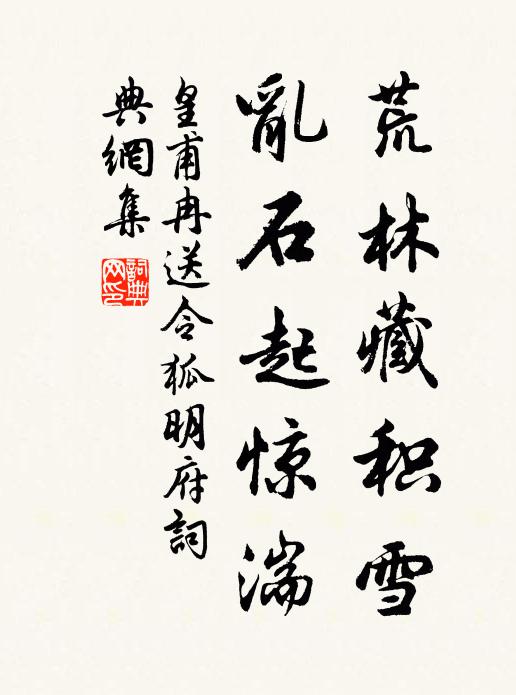 荒林藏积雪
亂石起惊湍
皇甫冉送令狐明府詞
典網集
詞典网印